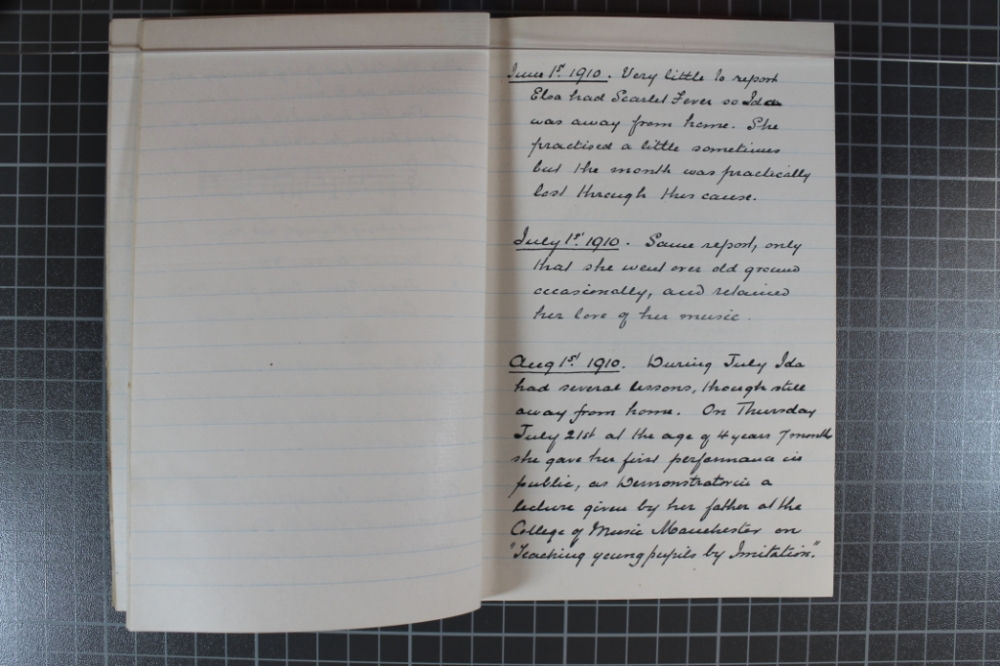 June 1st 1910. Very little to report
Elsa had Scarlet Fever so Ida
was away from home. She
practised a little sometimes
but the month was practically
lost through this cause.
July 1st 1910. Same report, only
that she went over old ground
occasionally, and retained
her love of her music.
Aug 1st 1910. During July Ida
had several lessons, though still
away from home. On Thursday
July 21st at the age of 4 years 7 months
she gave her first performance in
public, as Demonstrator in a
lecture given by her father at the
College of Music Manchester on
"Teaching young pupils by Imitation."